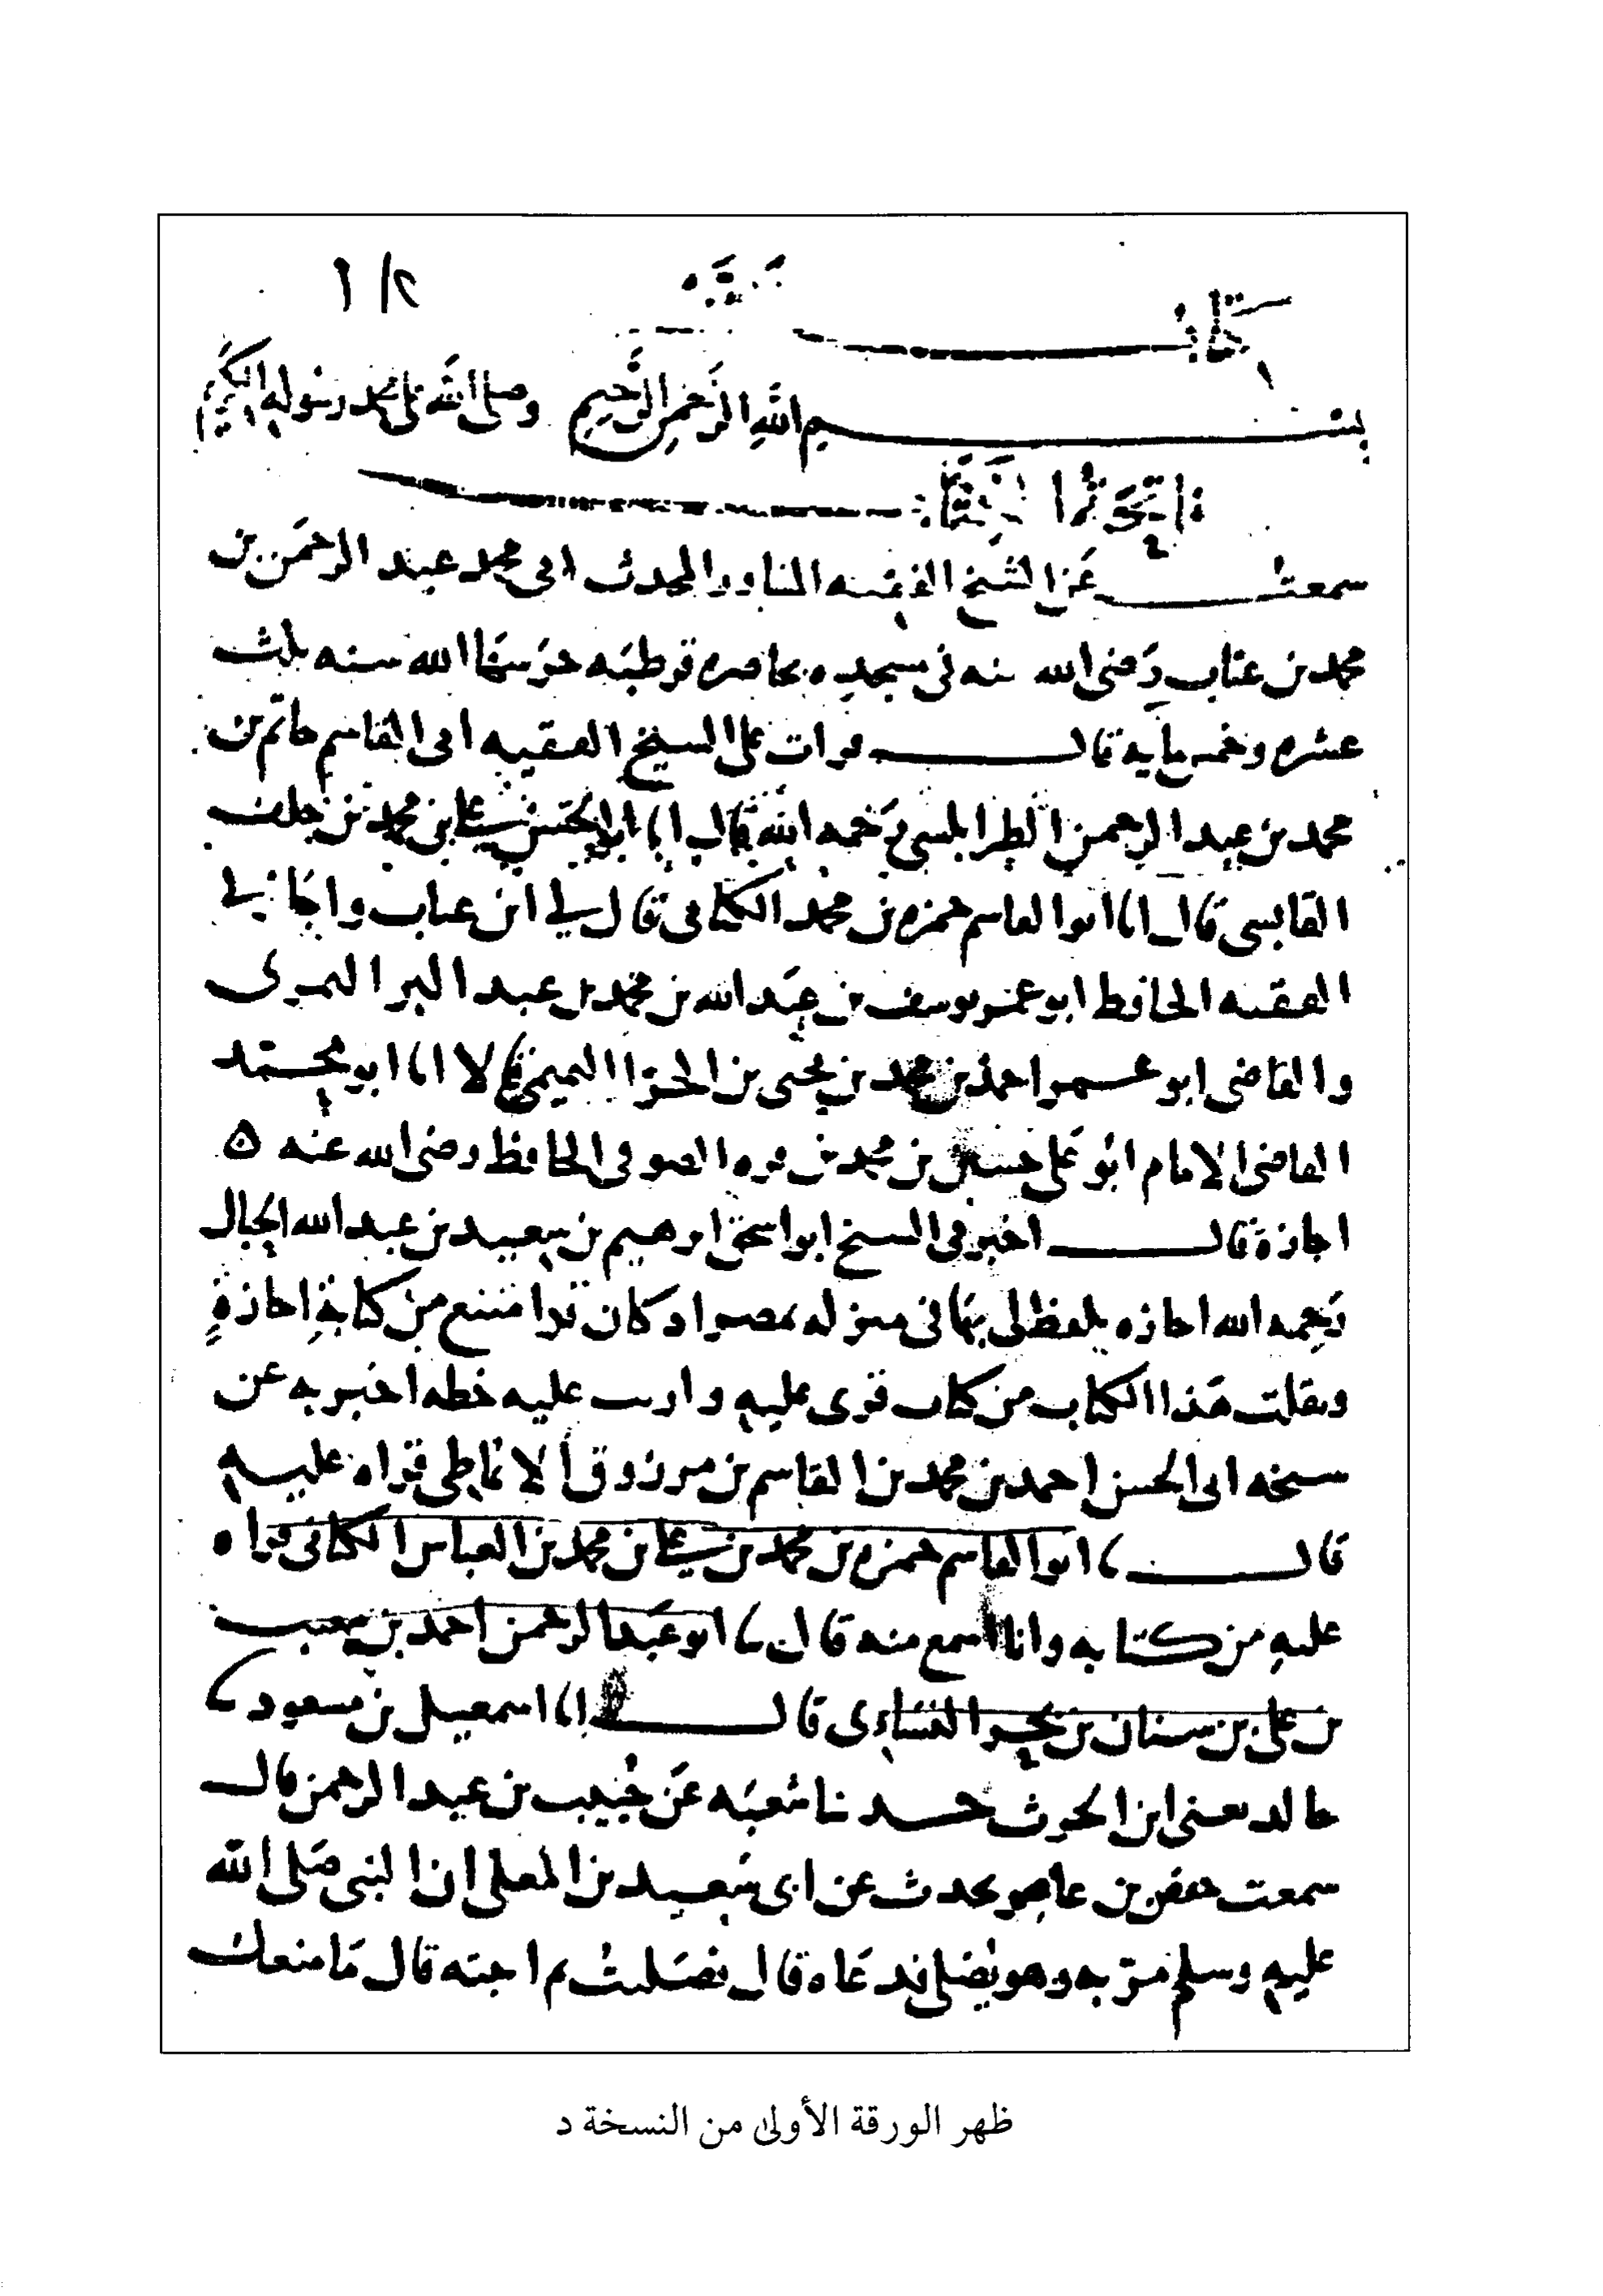 ٢/ ١
كتاب
بسم الله الرحمن الرحيم وصلى الله على محمد رسوله الكريم
سمعت عن الشيخ الفقيه المشاور المحدث ابى محمد عبد الرحمن بن
محمد بن عتاب رضى الله عنه فى مسجده بحاضرة قرطبه حرسها الله سنه ثلث
عشرة وخمس مايه قال قرات على الشيخ الفقيه ابى القاسم حاتم بن
محمد بن عبد الرحمن الطرابلسى رحمه الله قال انا ابو الحسن على بن محمد بن خلف
القابسى قال انا ابو القاسم حمزه بن محمد الكنانى قال لي ابن عتاب واجازنى
الفقيه الحافظ ابو عمر يوسف بن عبد الله بن محمد بن عبد البر النمرى
والقاضى ابو عمر احمد بن محمد بن يحيى بن الحذا التميمى قالا انا ابو محمد
القاضى الامام ابو على حسين بن محمد بن فيره الصوفى الحافظ رضى الله عنه ه
اجازة قال اخبرنى الشيخ ابو اسحق ابرهيم بن سعيد بن عبد الله الحبال
رحمه الله اجازه بلفظ لى بها فى منزله بمصر اذ كان قد امتنع من كتابة اجازة
ونقلت هذا الكتاب من كتاب قرى عليه ورايت عليه خطه اخبر به عن
شيخه ابى الحسن احمد بن محمد بن القاسم بن مرزوق الانماطى قراه عليه
قال نا ابو القاسم حمزه بن محمد بن على بن محمد بن العباس الكنانى قراه
عليه من كتابه وانا اسمع منه قال نا ابو عبد الرحمن احمد بن شعيب
بن على بن سنان بن بحر النسائى قال انا اسمعيل بن مسعود نا
خالد يعنى ابن الحرث حدثنا شعبه عن خبيب بن عبد الرحمن قال
سمعت حفص بن عاصم يحدث عن ابى سعيد بن المعلى ان النبى صلى الله
عليه وسلم مر به وهو يصلى فدعاه قال فصليت ثم اجبته قال ما منعك
ظهر الورقة الأولى من النسخة د